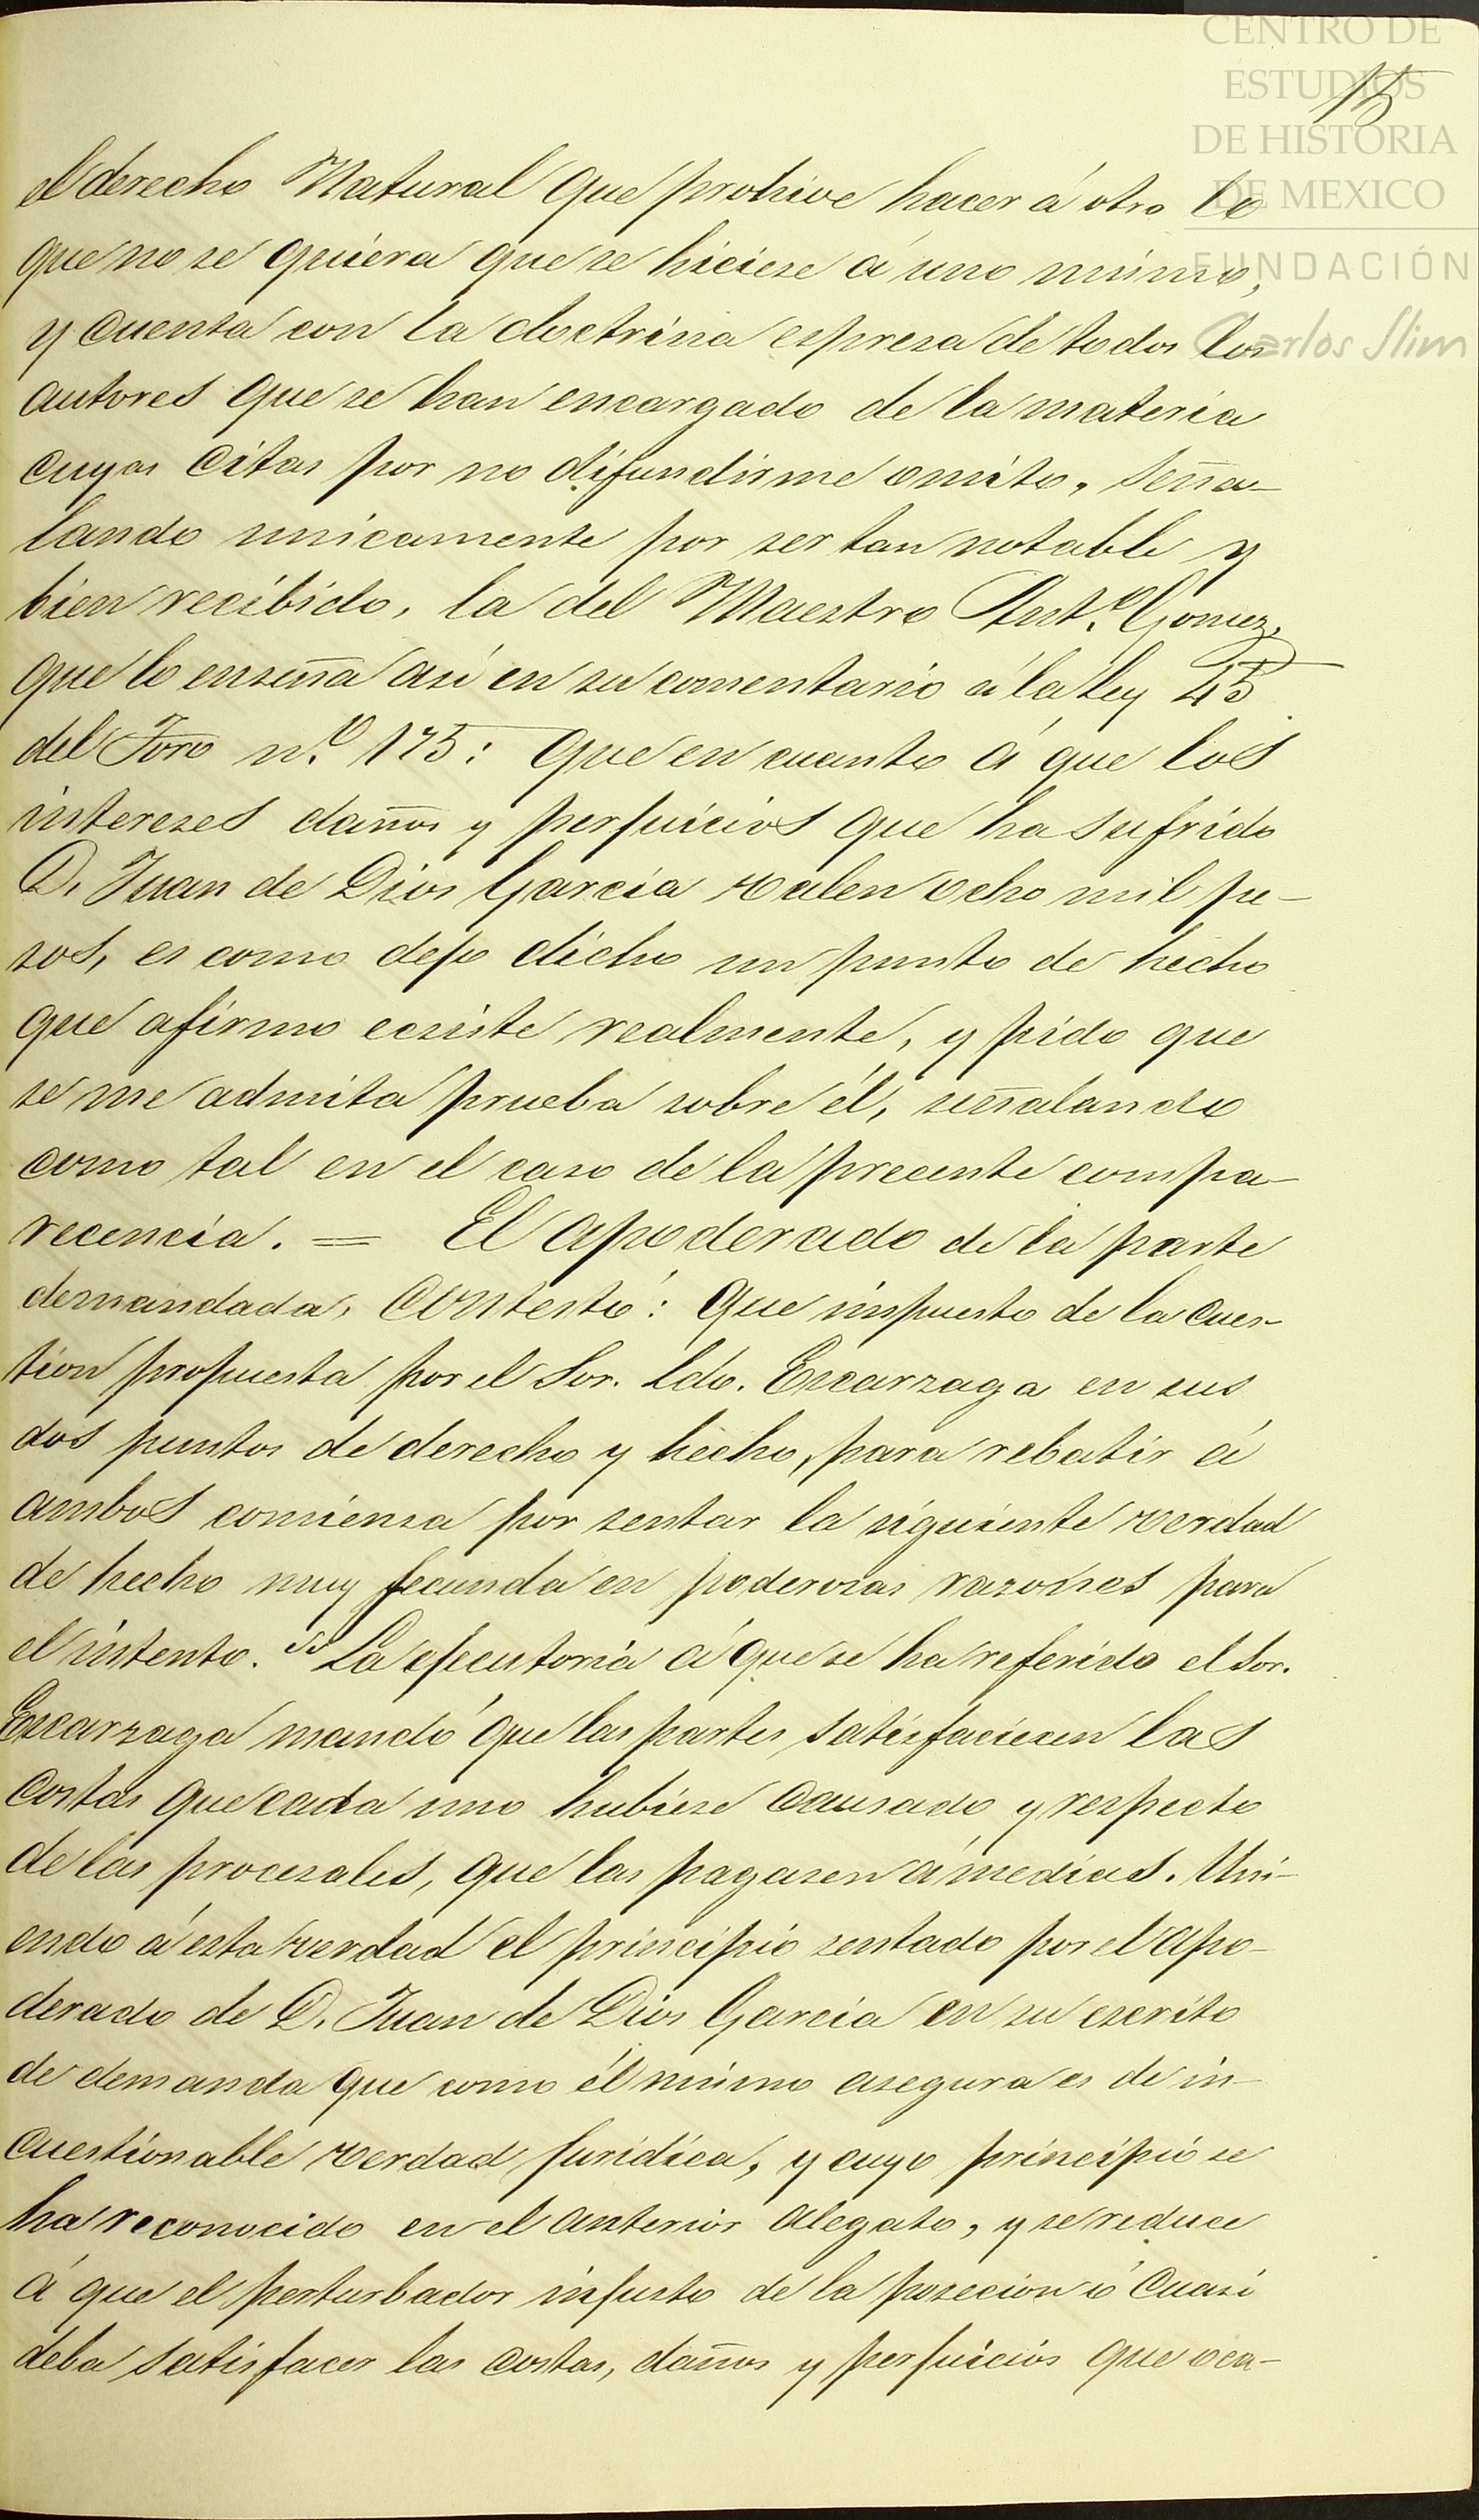 CENTRO DE
ESTUDIOS
DE HISTORIA
DE MEXICO
FUNDACIÓN
Carlos Slim
15
el derecho Natural que prohive hacer á otro lo
que no se quiera que se hiciese á uno mismo,
y cuenta con la doctrina espresa de todos los
autores que se han encargado de la materia
cuyas citas por no difundirme omito, seña-
lando unicamente por ser tan notable y
bien recibido, la del Maestro Ant.º Gomez,
que lo enseña asi en su comentario á la ley 45
del Toro n.º 175: que en cuanto á que los
intereses daños y perjuicios que ha sufrido
D. Juan de Dios Garcia valen ocho mil pe-
sos, es como dejo dicho un punto de hecho
que afirmo ecsiste realmente, y pido que
se me admita prueba sobre él, señalando
como tal en el caso de la precente compa-
recencia. = El apoderado de la parte
demandada, contestó: que impuesto de la cues-
tion propuesta por el Sor. Ldo. Escarzaga en sus
dos puntos de derecho y hecho, para rebatir á
ambos comienza por sentar la siguiente verdad
de hecho muy fecunda en poderosas razones para
el intento. "La ejecutoria á que se ha referido el Sor.
Escarzaga mandó que las partes satisfaciesen las
costas que cada uno hubiese causado y respecto
de las procesales, que las pagasen á medias. Uni-
endo á esta verdad el principio sentado por el apo-
derado de D. Juan de Dios Garcia en su escrito
de demanda que como él mismo asegura es de in-
cuestionable verdad juridica, y cuyo principio se
ha reconocido en el anterior alegato, y se reduce
á que el perturbador injusto de la posecion ó cuasi
deba satisfacer las costas, daños y perjuicios que oca-